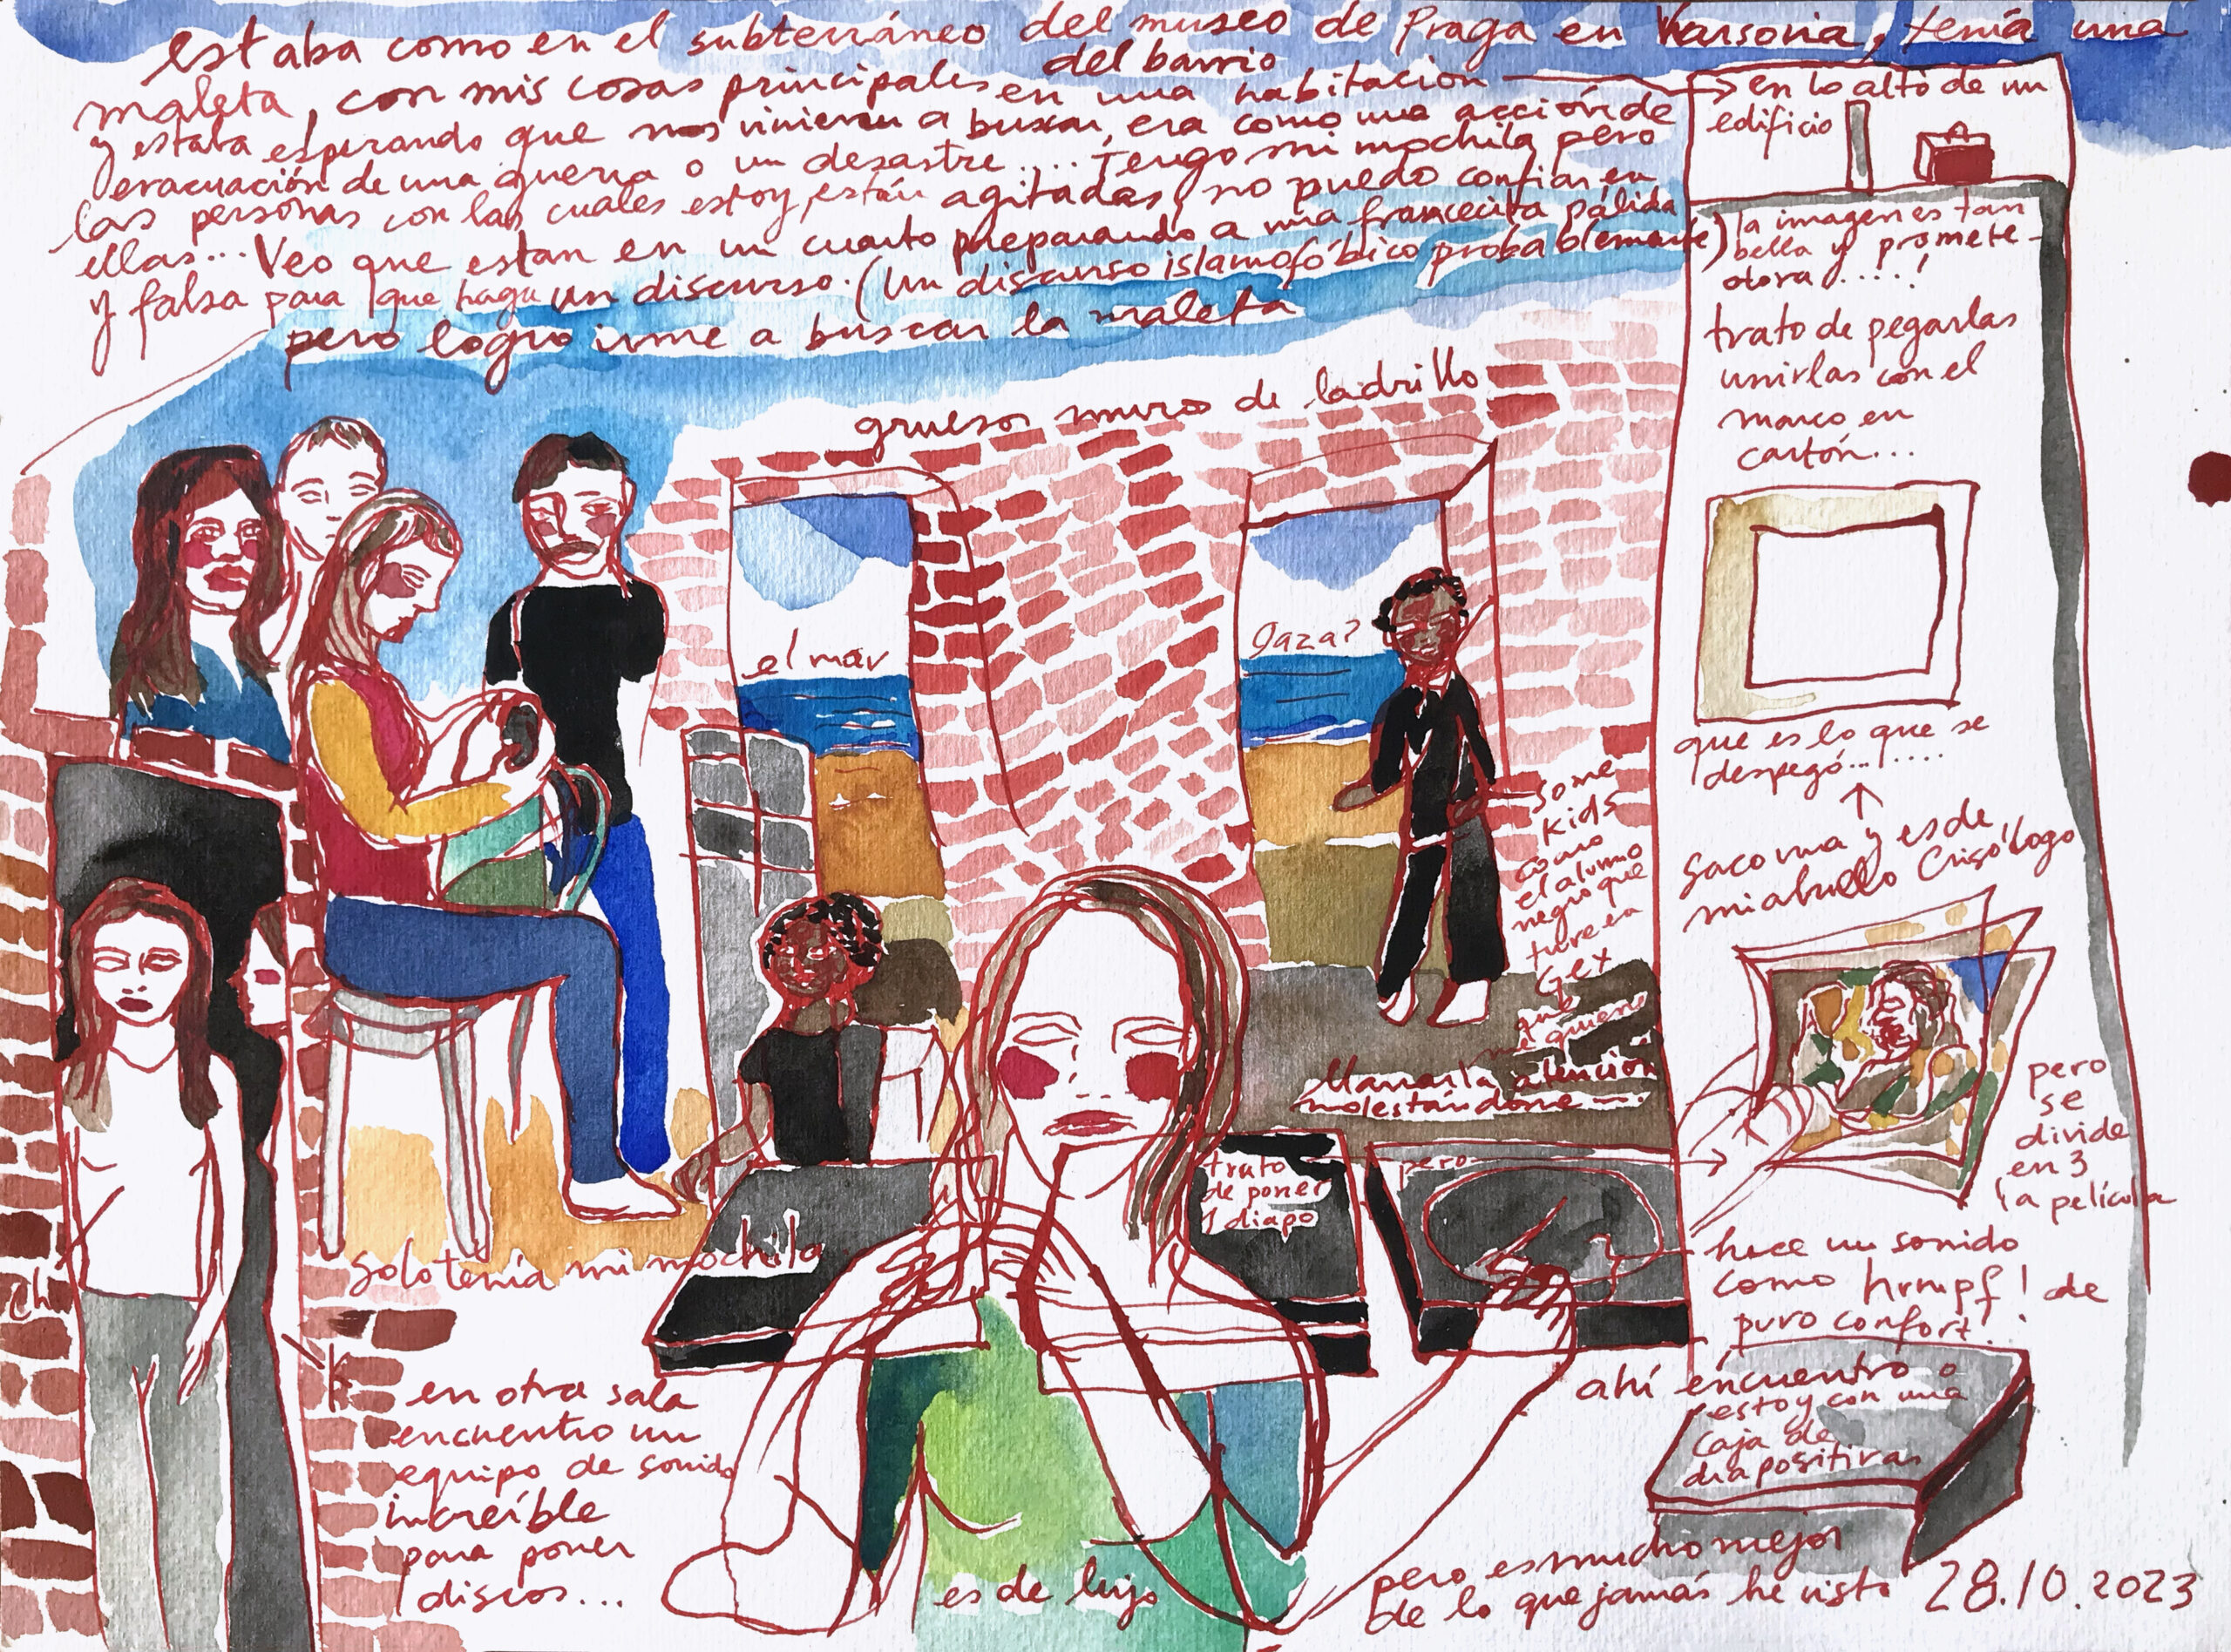 estaba como en el subterráneo del museo de Praga en Varsovia, tenía una
del barrio
maleta, con mis cosas principales en una habitación
en lo alto de un
edificio
y estaba esperando que nos vinieran a buscar, era como una acción de
evacuación de una guerra o un desastre.... Tengo mi mochila pero
las personas con las cuales estoy, están agitadas, no puedo confiar en
ellas... Veo que estan en un cuarto preparando a una francecita pálida
y falsa para que haga un discurso. (Un discurso islamofóbico probablemente)
pero logro irme a buscar la maleta
grueso muro de ladrillo
el mar
Gaza?
some
kids
como
el alumno
negro que
tuve en
Gex
que
me quieren
llamar la atención
molestándome...
solo tenía mi mochila
en otra sala
encuentro un
equipo de sonido
increíble
para poner
discos...
es de lujo
trato
de poner
1 diapo
pero
la imagen es tan
bella y promete-
dora.....!
trato de pegarlas
unirlas con el
marco en
cartón...
que es lo que se
despegó.......
saco una y es de
mi abuelo Crisólogo
pero
se
divide
en 3
la película
hace un sonido
como hrmpf! de
puro confort!
ahí encuentro o
estoy con una
caja de
diapositivas
pero es mucho mejor
de lo que jamás he visto
28.10.2023